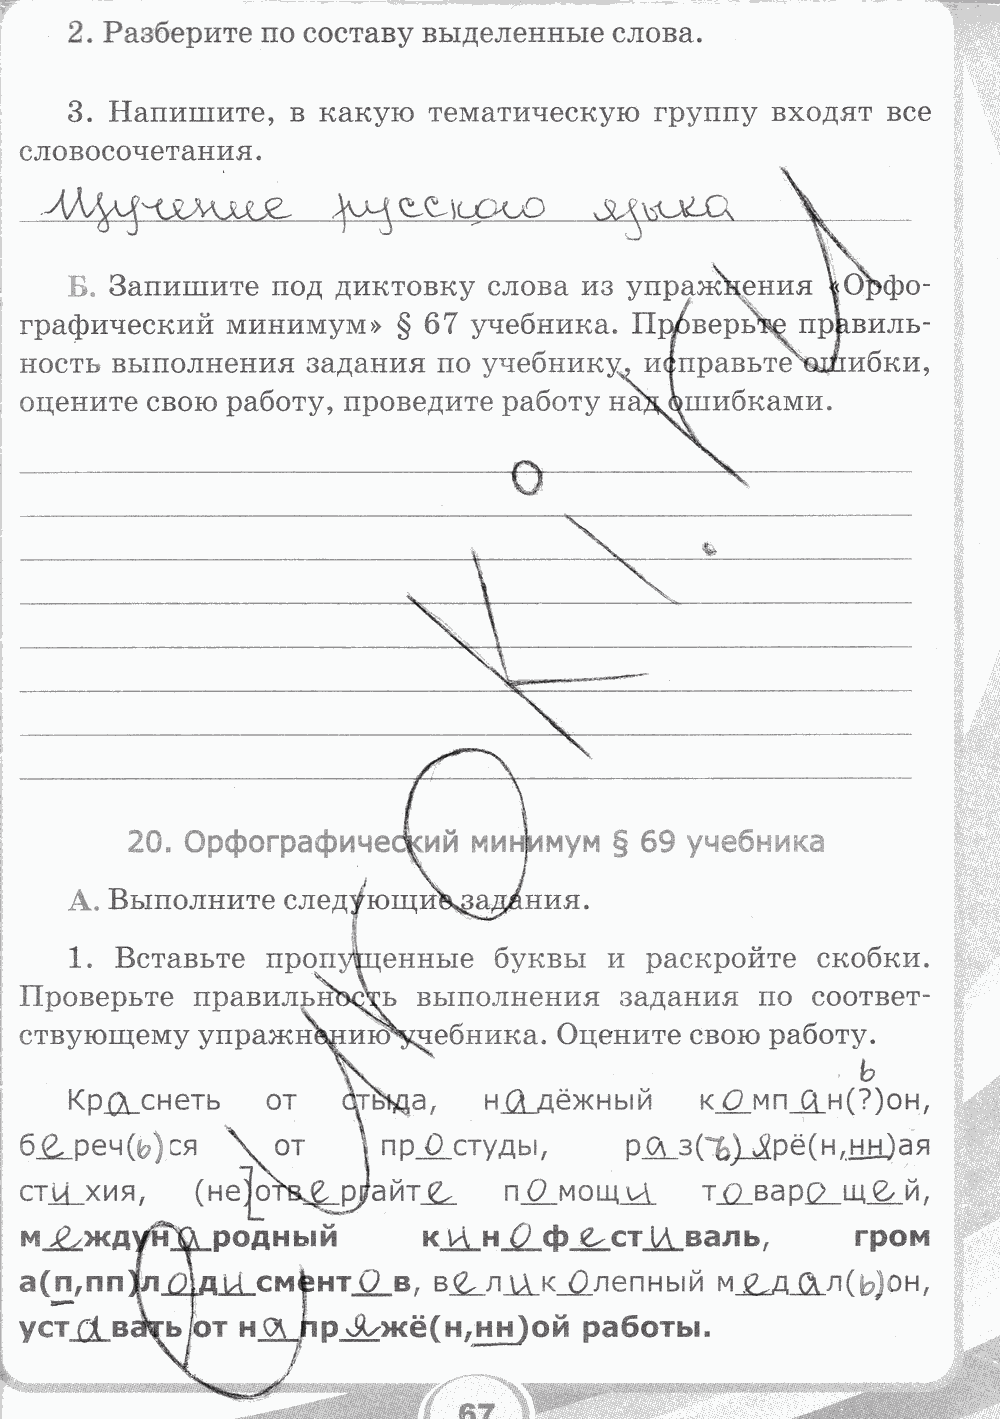 2. Разберите по составу выделенные слова.
3. Напишите, в какую тематическую группу входят все
словосочетания.
Изучение русского языка
Б. Запишите под диктовку слова из упражнения «Орфо-
графический минимум» § 67 учебника. Проверьте правиль-
ность выполнения задания по учебнику, исправьте ошибки,
оцените свою работу, проведите работу над ошибками.
20. Орфографический минимум § 69 учебника
А. Выполните следующие задания.
1. Вставьте пропущенные буквы и раскройте скобки.
Проверьте правильность выполнения задания по соответ-
ствующему упражнению учебника. Оцените свою работу.
ь
Краснеть от стыда, надёжный компан(?)он,
береч(ь)ся от простуды, раз(ъ)ярё(н,нн)ая
стихия, (не)отвергайте помощи товарощей,
международный кинофестиваль, гром
а(п,пп)лодисментов, великолепный медал(ь)он,
уставать от напряжё(н,нн)ой работы.
67